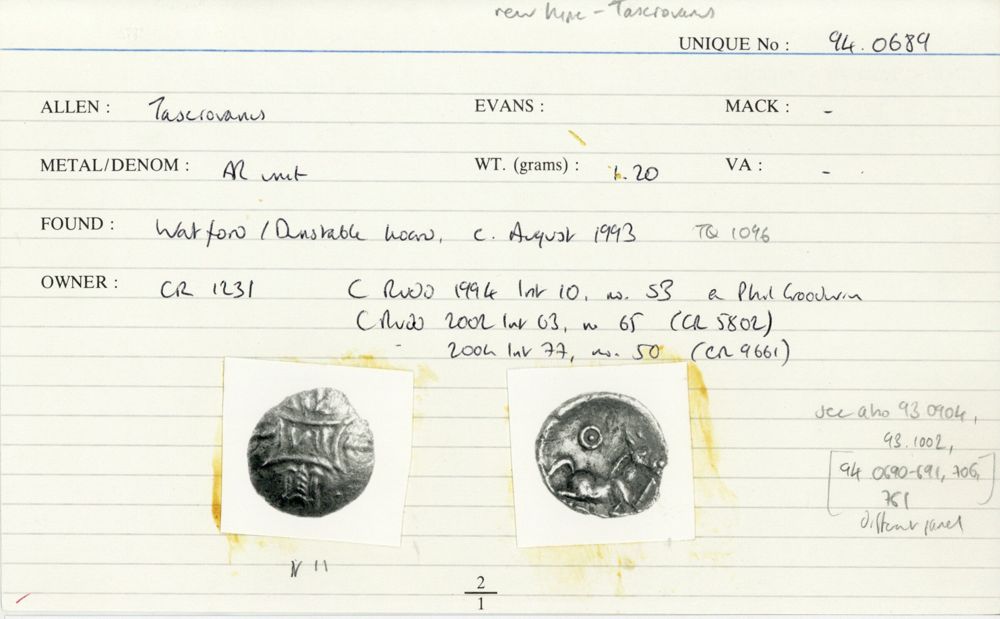 new type - Tasciovanus
UNIQUE No : 94.0689
ALLEN : Tasciovanus EVANS : MACK : -
METAL/DENOM : AR unit WT. (grams) : 1.20 VA : -
FOUND : Watford / Dunstable hoard, c. August 1993 TQ 1096
OWNER : CR 1231 C Rudd 1994 list 10, no. 53 a Phil Goodwin
C Rudd 2002 list 63, no 65 (CR 5802)
2004 list 77, no. 50 (CR 9661)
see also 93.0904,
93.1002,
[94.0690-691, 706,
761]
different panel
2
1